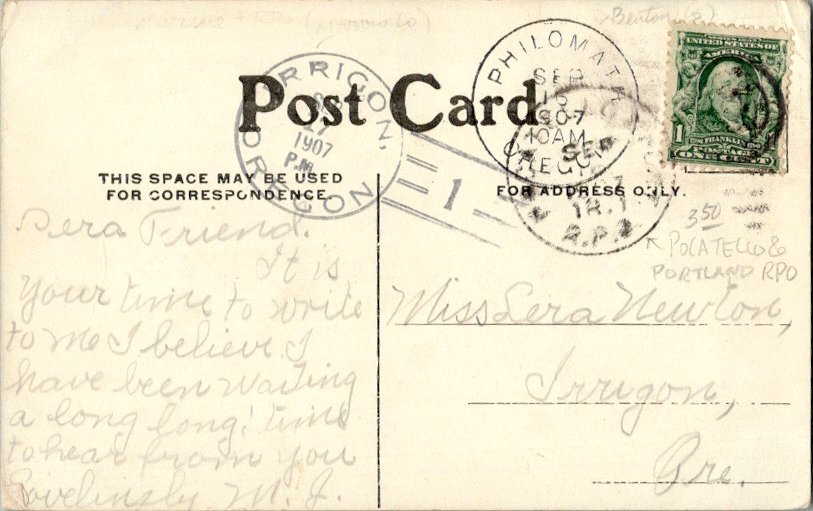 (Morrow Co)
Benton
Post Card.
IRRIGON,
SEP
27
1907
P.M.
OREGON
1
PHILOMATH
SEP
16
1907
10AM
OREGON
SEP
TR. 1
R.P.O.
UNITED STATES OF
AMERICA
1
FRANKLIN
POSTAGE
ONE CENT
THIS SPACE MAY BE USED
FOR CORRESPONDENCE.
FOR ADDRESS ONLY.
3 50
POCATELLO &
PORTLAND RPO
Dera Friend.
It is
your time to write
to me I believe I
have been waiting
a long long time
to hear from you
Lovelinely M. J.
Miss Lera Newton,
Irrigon,
Ore.